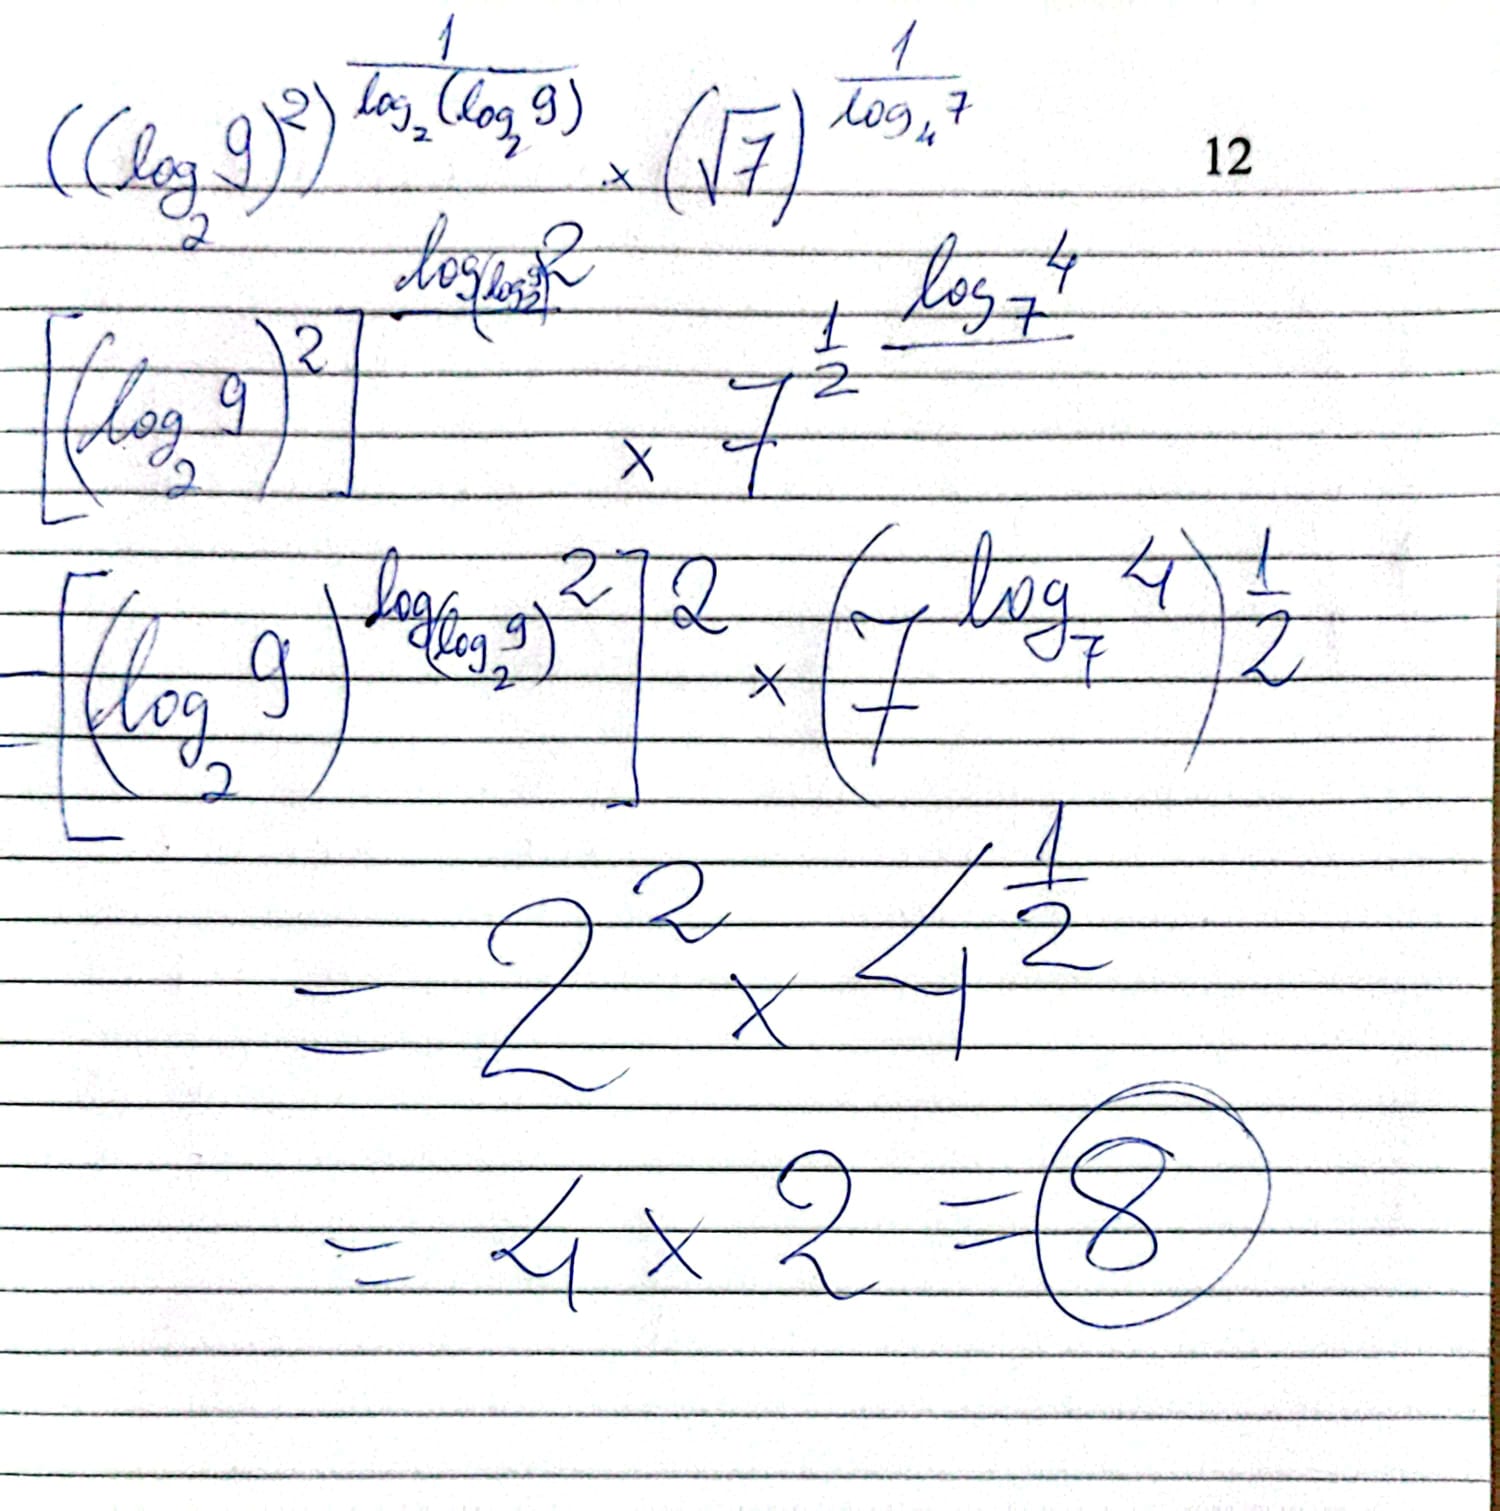 ((log₂ 9)²)^(1/(log₂(log₂ 9))) × (√7)^(1/(log₄ 7))
12
[(log₂ 9)²]^(log_(log₂ 9) 2) × 7^(1/2 log₇ 4)
= [(log₂ 9)^(log_(log₂ 9) 2)]² × (7^(log₇ 4))^(1/2)
= 2² × 4^(1/2)
= 4 × 2 = 8